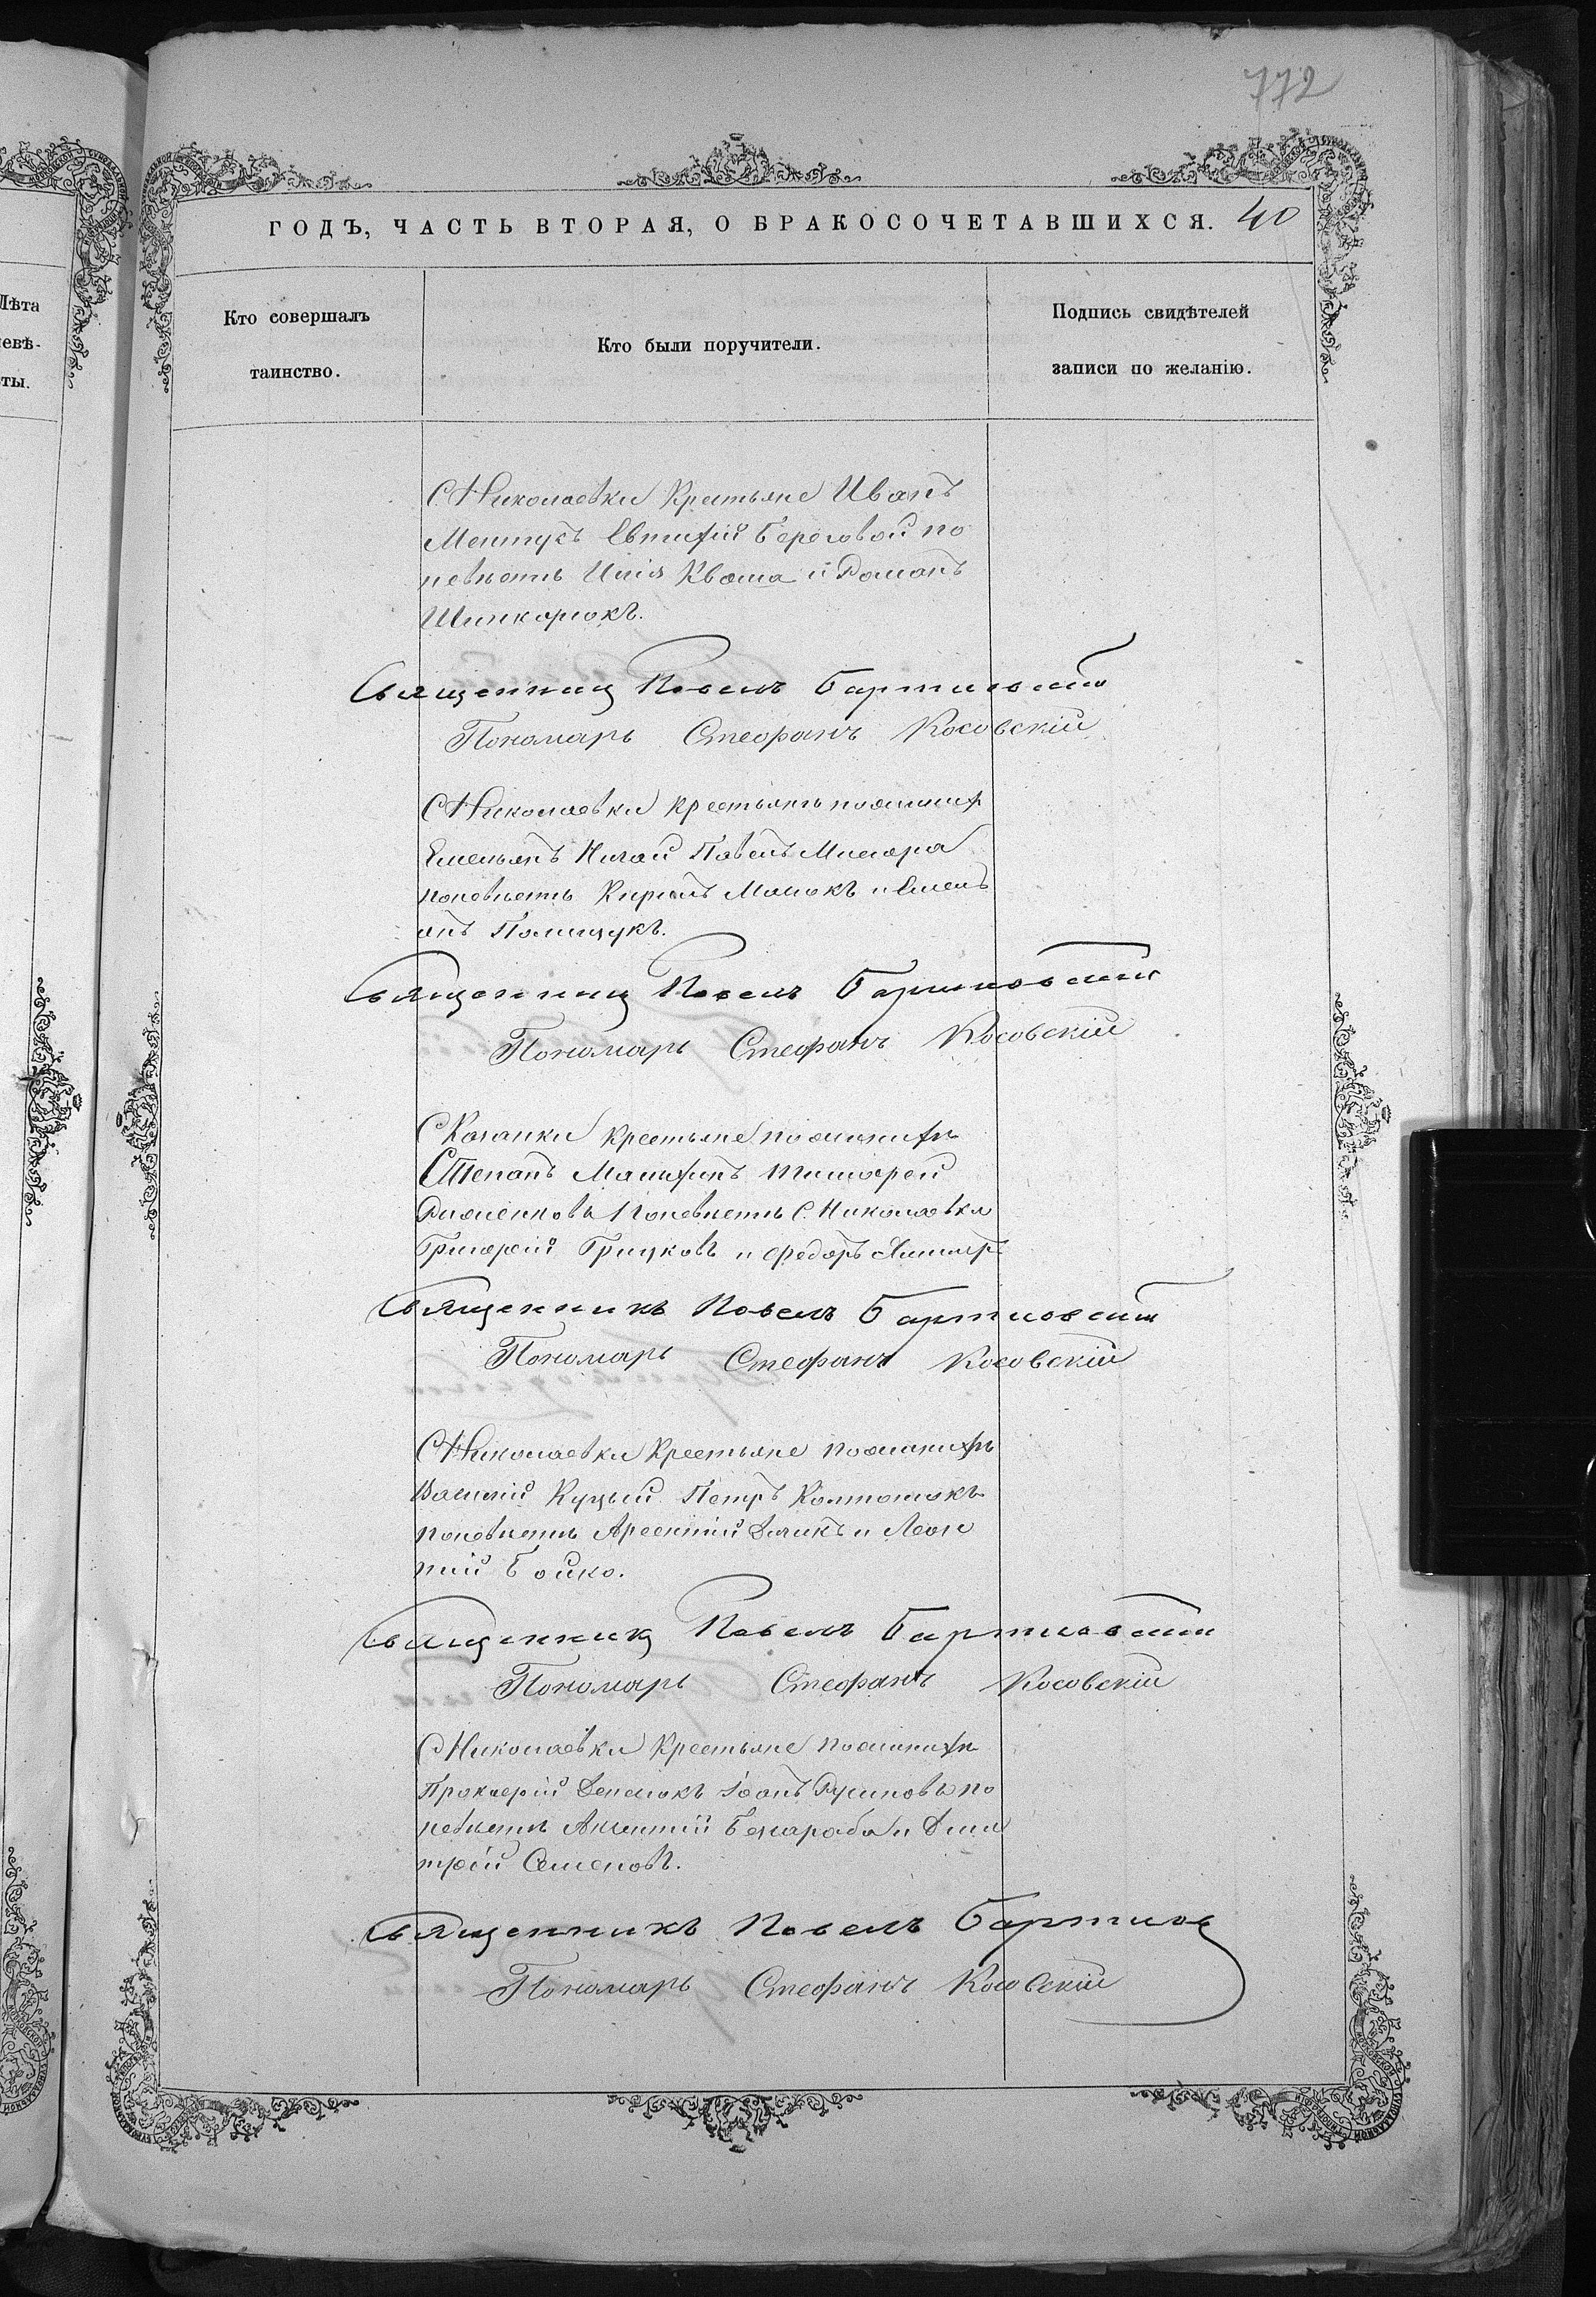 772
ГОДЪ, ЧАСТЬ ВТОРАЯ, О БРАКОСОЧЕТАВШИХСЯ. 40
Лѣта
невѣ-
сты.
Кто совершалъ
таинство.
Кто были поручители.
Подпись свидѣтелей
записи по желанію.
С. Николаевки Крестьяне Иванъ
Евтихій Береговой по
невѣстѣ Илія Кваша и Романъ
Шинкарюкъ.
Священник Павелъ
Пономарь Стефанъ Косовскій
С Николаевки крестьяне по женихѣ
Емельянъ Ничай Павелъ
по невѣстѣ Кирилъ и Емель
янъ Полищукъ.
Священник Павелъ
Пономарь Стефанъ Косовскій
С Казанки крестьяне по женихѣ
Степанъ Тимофей
по невѣстѣ С. Николаевки
Григорій Грицковъ и Федоръ
Священникъ Павелъ
Пономарь Стефанъ Косовскій
С Николаевки Крестьяне по женихѣ
Василій Куцый Петръ
по невѣстѣ Арсентій и Леон
тій Бойко.
Священник Павелъ
Пономарь Стефанъ Косовскій
С Николаевки Крестьяне по женихѣ
Прокофій Іоанъ Русиновъ по
невѣстѣ Бежараба и Дми
трій Семеновъ.
Священникъ Павелъ
Пономарь Стефанъ Косовскій